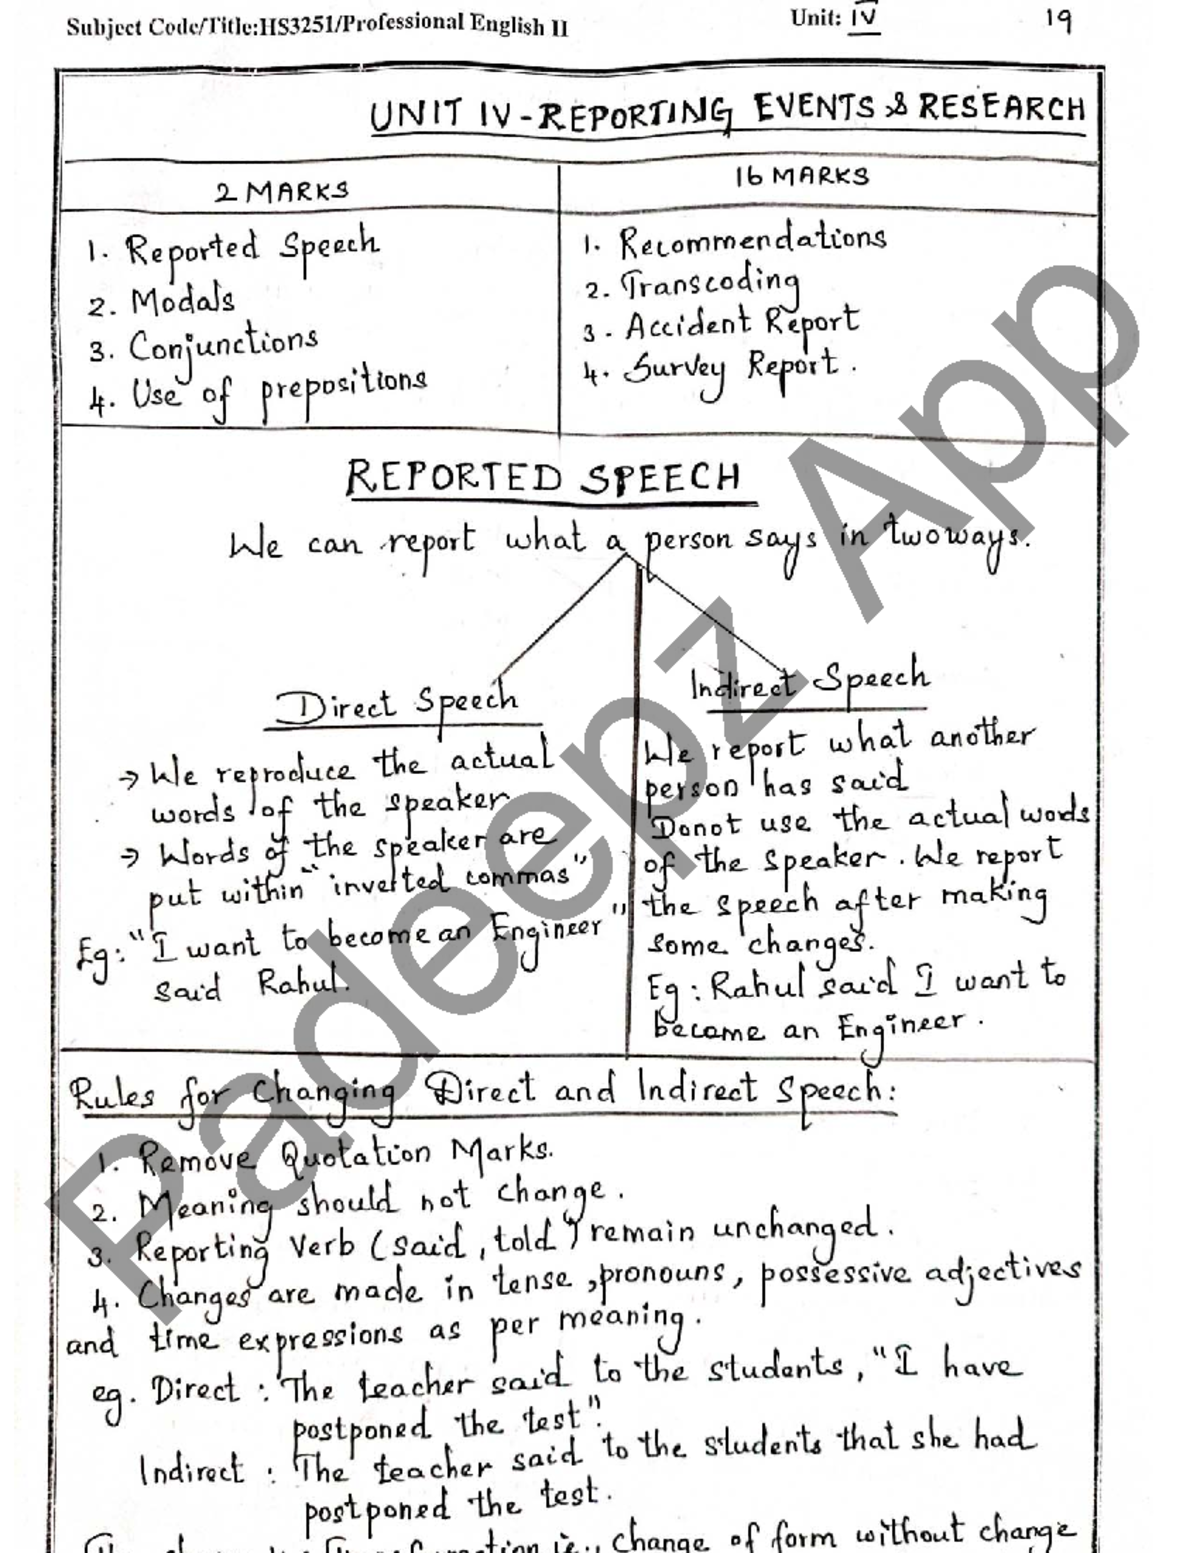 Subject Code/Title:HS3251/Professional English II Unit: IV 19
UNIT IV-REPORTING EVENTS & RESEARCH
2 MARKS
1. Reported Speech
2. Modals
3. Conjunctions
4. Use of prepositions
16 MARKS
1. Recommendations
2. Transcoding
3. Accident Report
4. Survey Report.
REPORTED SPEECH
We can report what a person says in twoways.
Direct Speech
→ We reproduce the actual
words of the speaker
→ Words of the speaker are
put within "inverted commas"
Eg: "I want to become an Engineer"
said Rahul.
Indirect Speech
We report what another
person has said
Donot use the actual words
of the speaker. We report
the speech after making
some changes.
Eg: Rahul said I want to
become an Engineer.
Rules for Changing Direct and Indirect Speech:
1. Remove Quotation Marks.
2. Meaning should not change.
3. Reporting Verb (said, told) remain unchanged.
4. Changes are made in tense, pronouns, possessive adjectives
and time expressions as per meaning.
eg. Direct : The teacher said to the students, "I have
postponed the test".
Indirect : The teacher said to the students that she had
postponed the test.
i.e., change of form without change
Padeepz App